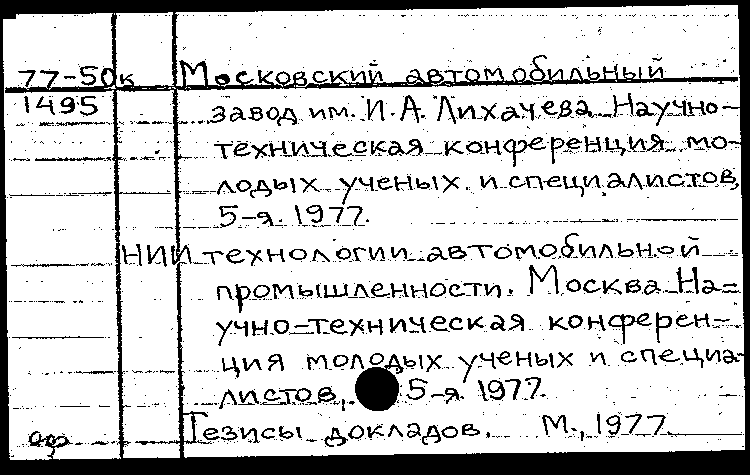 77-50к Московский автомобильный
1495 завод им. И.А. Лихачева Научно-
техническая конференция мо-
лодых ученых и специалистов,
5-я. 1977.
НИИ технологии автомобильной
промышленности. Москва На=
учно-техническая конферен-
ция молодых ученых и специа-
листов, 5-я. 1977.
Тезисы докладов. М., 1977.